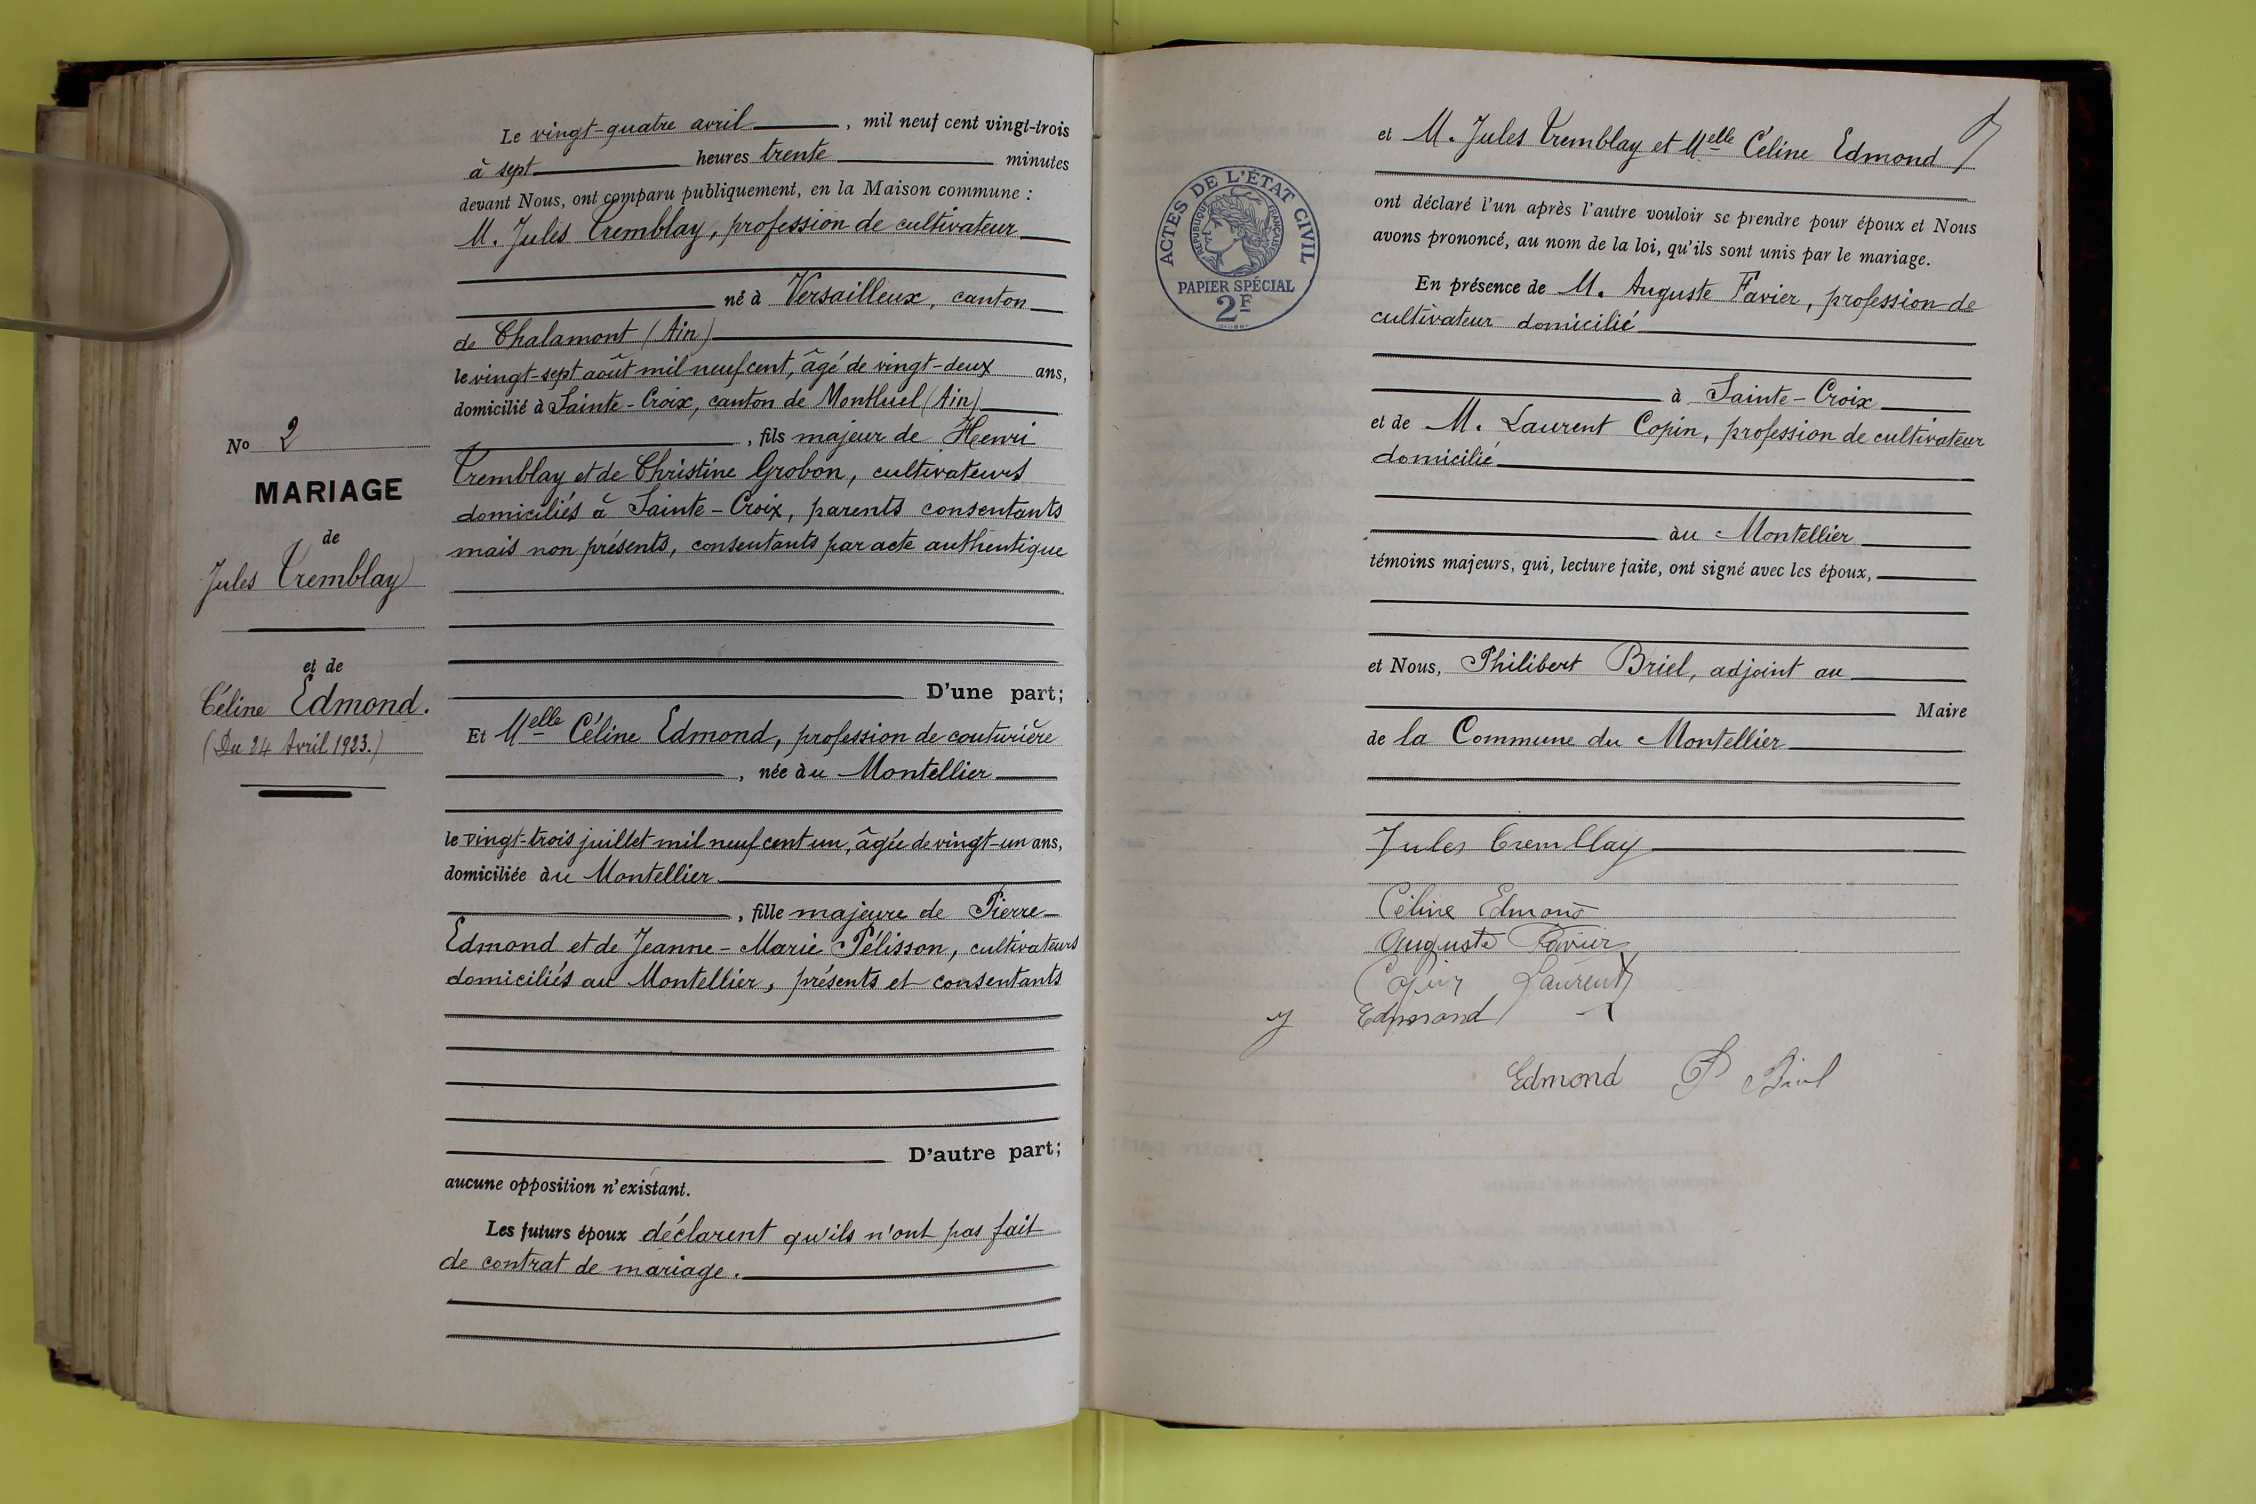 Le vingt-quatre avril, mil neuf cent vingt-trois
à sept heures trente minutes
devant Nous, ont comparu publiquement, en la Maison commune :
M. Jules Tremblay, profession de cultivateur
né à Versailleux, canton
de Chalamont (Ain)
le vingt-sept août mil neuf cent, âgé de vingt-deux ans,
domicilié à Sainte-Croix, canton de Montluel (Ain)
, fils majeur de Henri
Tremblay et de Christine Grobon, cultivateurs
domiciliés à Sainte-Croix, parents consentants
mais non présents, consentants par acte authentique
D'une part;
Et Melle Céline Edmond, profession de couturière
, née au Montellier
le vingt-trois juillet mil neuf cent un, âgée de vingt-un ans,
domiciliée au Montellier
, fille majeure de Pierre
Edmond et de Jeanne-Marie Pélisson, cultivateurs
domiciliés au Montellier, présents et consentants
D'autre part;
aucune opposition n'existant.
Les futurs époux déclarent qu'ils n'ont pas fait
de contrat de mariage.
No 2
MARIAGE
de
Jules Tremblay
et de
Céline Edmond.
(Du 24 Avril 1923.)
et M. Jules Tremblay et Melle Céline Edmond
ont déclaré l'un après l'autre vouloir se prendre pour époux et Nous
avons prononcé, au nom de la loi, qu'ils sont unis par le mariage.
En présence de M. Auguste Favier, profession de
cultivateur domicilié
à Sainte-Croix
et de M. Laurent Copin, profession de cultivateur
domicilié
au Montellier
témoins majeurs, qui, lecture faite, ont signé avec les époux,
et Nous, Philibert Briel, adjoint au
Maire
de la Commune du Montellier
Jules Tremblay
Céline Edmond
Auguste Favier
Copin Laurent
Edmond
Edmond P Briel
ACTES DE L'ÉTAT CIVIL
RÉPUBLIQUE FRANÇAISE
PAPIER SPÉCIAL
2F